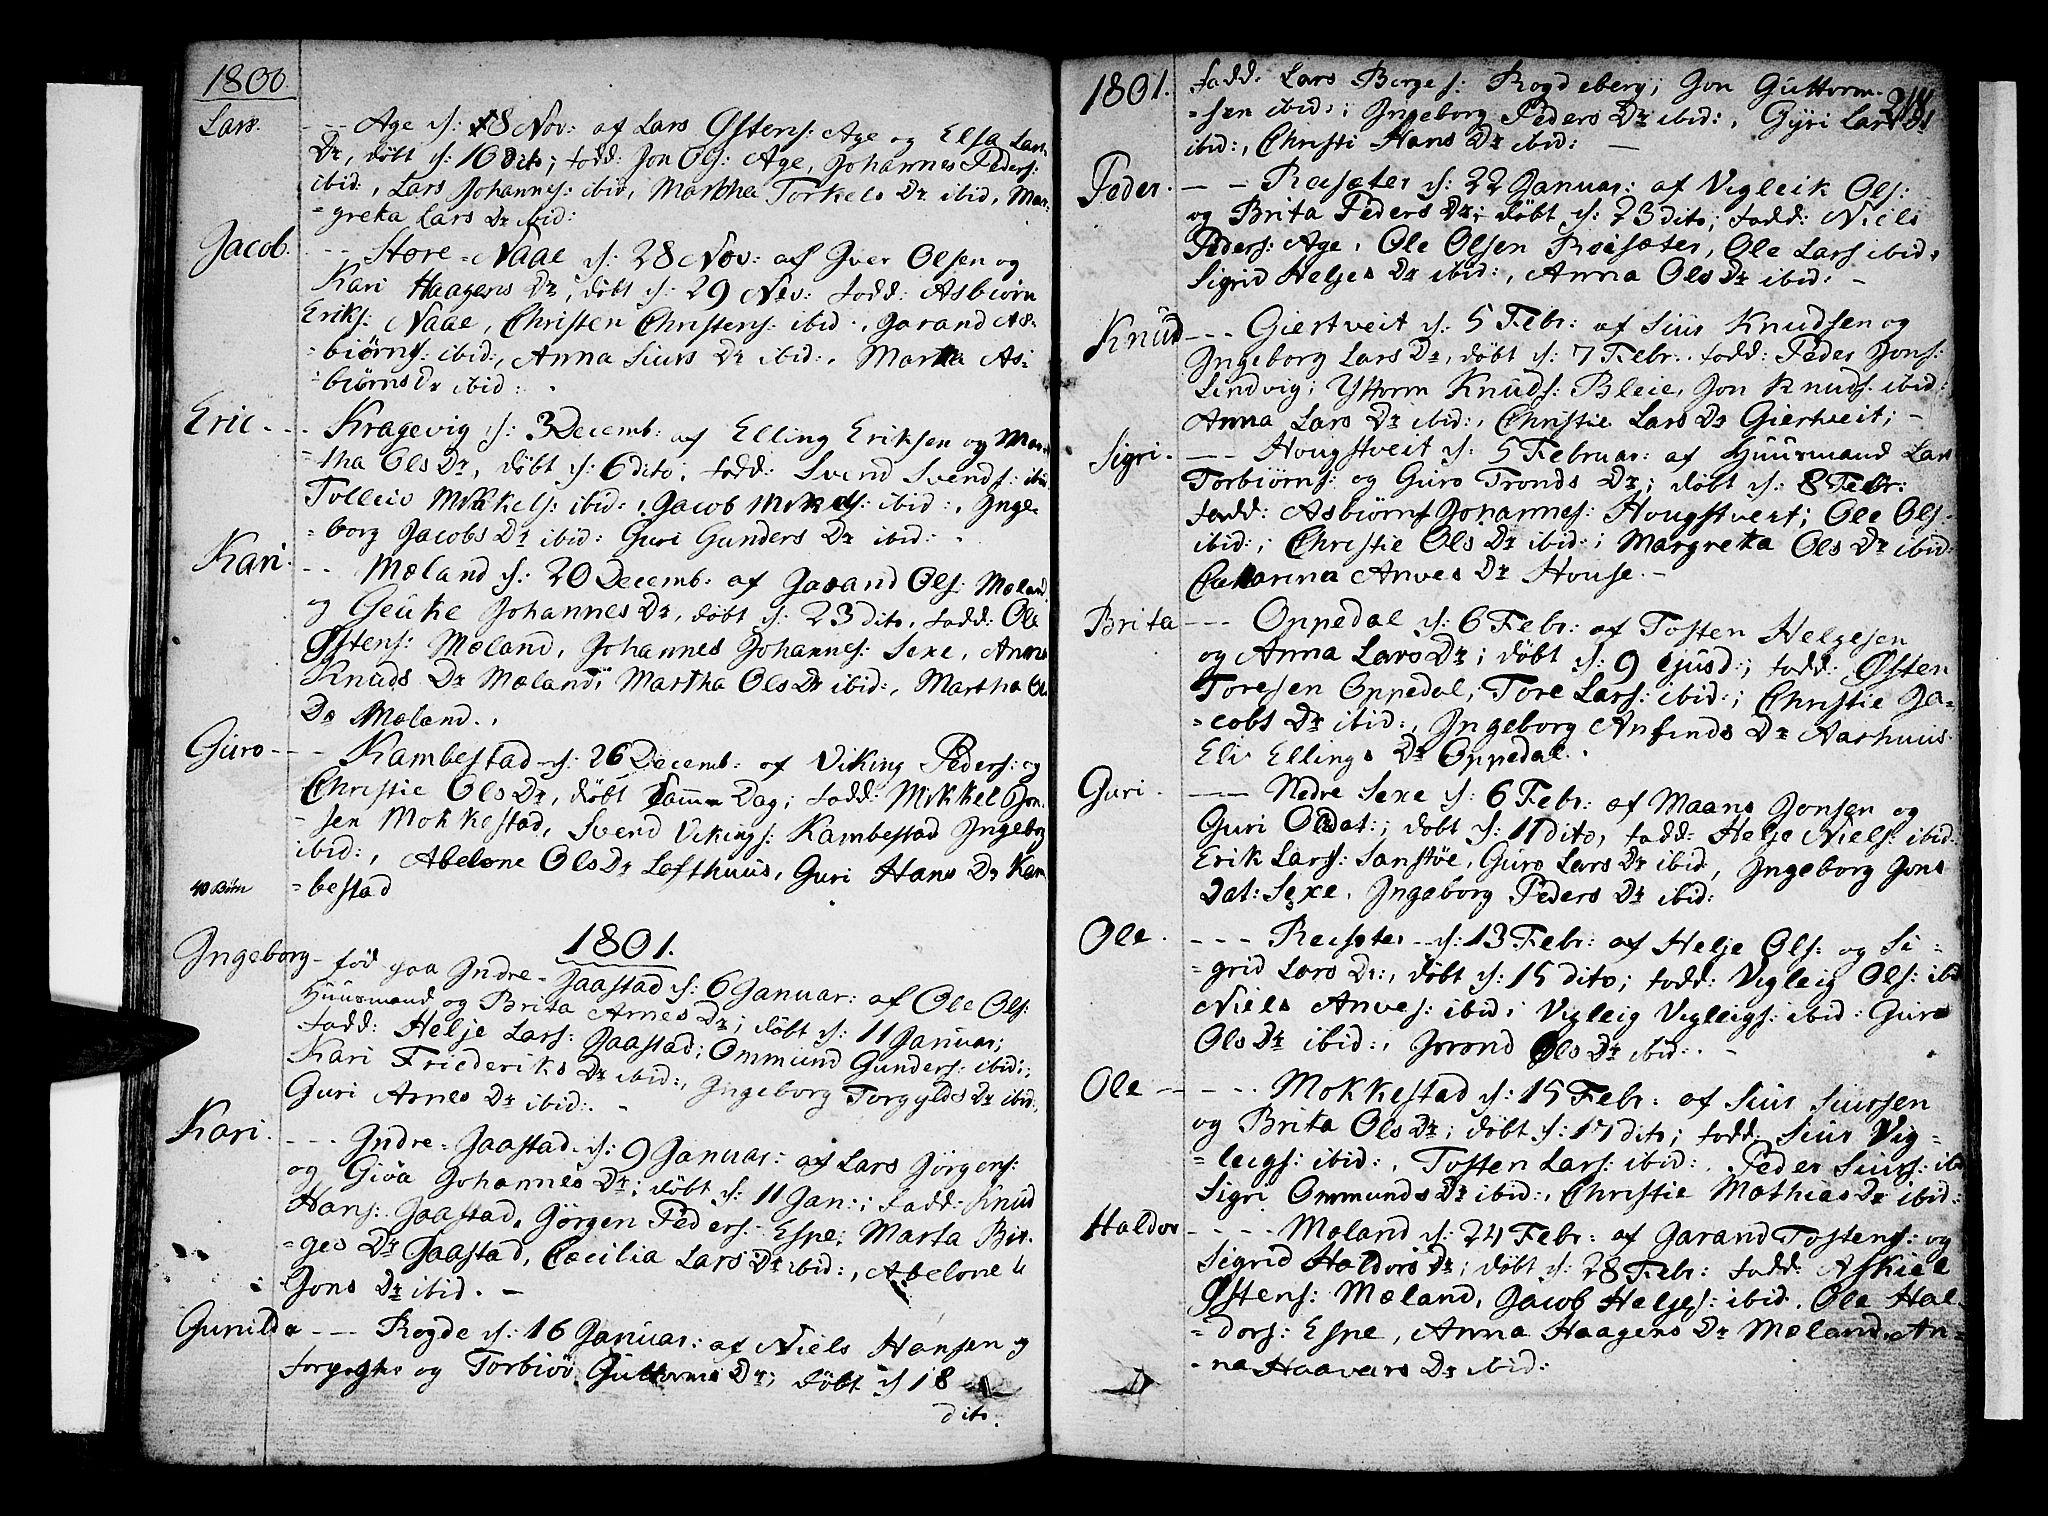 1800.
Lars. --- Age d: 8 Nov: af Lars Østens: Age og Elsa Lars
Dr, døbt d: 16 dito; fadd: Jon Ols: Age, Johannes Peders:
ibid:, Lars Johannes: ibid, Martha Torkels Dr ibid, Mar=
=greta Lars Dr ibid:
Jacob. --- Store=Naae d: 28 Nov: af Iver Olsen og
Kari Haagens Dr, døbt d: 29 Nov: fadd: Asbiørn
Eriks: Naae, Christen Christens: ibid:, Garand As=
=biørns: ibid:, Anna Siurs Dr ibid:, Martha As=
=biørns Dr ibid:
Eric --- Kragevig d: 3 Decemb: af Elling Eriksen og Mar=
=tha Ols Dr, døbt d: 6 dito, fadd: Svend Svends: ibid
Tolleiv Mikkels: ibid:, Jacob Mikkels: ibid:, Inge=
=borg Jacobs Dr ibid: Guri Gunders Dr ibid:
Kari. -- Mæland d: 20 Decemb: af Garand Ols: Mæland
og Geuke Johannes Dr, døbt d: 23 dito, fadd: Ole
Østens: Mæland, Johannes Johannes: Sexe, Anna
Knuds Dr Mæland; Martha Ols Dr ibid:, Martha Ol
Dr Mæland.
Guro --- Kambestad d: 26 Decemb: af Viking Peders: og
Christie Ols Dr, døbt samme Dag; fadd: Mikkel Jon=
=sen Mokkestad, Svend Vikings: Kambestad Ingeborg
ibid:, Abelone Ols Dr Lofthuus, Guri Hans Dr Kam
40 Børn =bestad
1801.
Ingeborg - fød paa Indre-Jaastad d: 6 Januar: af Ole Ols:
Huusmand og Brita Arnes Dr; døbt d: 11 Januar;
fadd: Helje Lars: Jaastad; Ommund Gunders: ibid:;
Kari Friederiks Dr ibid:, Ingeborg Torgylds Dr ibid:,
Guri Arnes Dr ibid:. -
Kari. --- Indre-Jaastad d: 9 Januar: af Lars Jørgens:
og Giøa Johannes Dr; døbt d: 11 Jan:; fadd: Knud
Hans: Jaastad, Jørgen Peders: Espe; Marta Bir=
=ges Dr Jaastad, Cæcilia Lars Dr ibid:, Abelone
Jons Dr ibid. -
Gunilda --- Rogde d: 16 Januar: af Niels Hansen og
og Torbiør Guttorms Dr; døbt d 18
dito.
1801. fadd: Lars Berges: Rogdeberg; Jon Guttorm=
=sen ibid:; Ingeborg Peders Dr ibid:, Gyri Lars Dr
ibid:, Christi Hans Dr ibid: -
Peder. -- Reisæter d: 22 Januar: af Vigleik Ols:
og Brita Peders Dr; døbt d: 23 dito; fadd: Niels
Peders: Age, Ole Olsen Reisæter, Ole Lars ibid:
Sigrid Heljes Dr ibid:, Anna Ols Dr ibid: -
Knud --- Giertveit d: 5 Febr: af Siur Knudsen og
Ingeborg Lars Dr, døbt d: 7 Febr: fadd: Peder Jons:
Lindvig; Yttorm Knuds: Bleie, Jon Knuds: ibid:
Anna Lars Dr ibid:, Christie Lars Dr Giertveit; -
Sigri. --- Hougstveit d: 5 Februar: af Huusmand Lars
Torbiørns: og Guro Tronds Dr; døbt d: 8 Febr:
fadd: Asbiørn Johannes: Hougstveit; Ole Ols.
ibid:; Christie Ols Dr ibid:; Margreta Ols Dr ibid:
Catarina Arnes Dr House. -
Brita --- Oppedal d: 6 Febr: af Tosten Helgesen
og Anna Lars Dr; døbt d: 9 ejusd:; fadd: Østen
Toresen Oppedal, Tore Lars: ibid:; Christie Ja=
=cobs Dr ibid:, Ingeborg Anfinds Dr Aarhuus
Eli Ellings Dr Oppedal.
Guri. --- Nedre Sexe d: 6 Febr: af Maans Jonsen og
Guri Ols dat:; døbt d: 11 dito, fadd: Helje Niels: ibid:
Erik Lars: Sanstøe, Guro Lars Dr ibid, Ingeborg Jons
Dat: Sexe, Ingeborg Peders Dr ibid:
Ole. --- Reisæter d: 13 Febr: af Helje Ols: og Si=
=grid Lars Dr:, døbt d: 15 dito; fadd: Vigleig Ols: ibid
Niels Arnes: ibid; Vigleig Vigleigs: ibid: Guro
Ols Dr ibid:, Jorond Ols Dr ibid:. -
Ole --- Mokkestad d: 15 Febr: af Siur Siursen
og Brita Ols Dr; døbt d: 17 dito; fadd: Siur Vig=
=leigs: ibid:, Tosten Lars: ibid:, Peder Siurs: ibid
Sigri Ommunds Dr ibid:, Christie Mathias Dr ibid:
Haldor --- Mæland d: 24 Febr: af Garand Tostens: og
Sigrid Haldors Dr; døbt d: 28 Febr: fadd: Askiel
Østens: Mæland, Jacob Heljes: ibid. Ole Hal=
=dors: Espe, Anna Haagens Dr Mæland, An=
=na Haavars Dr ibid: